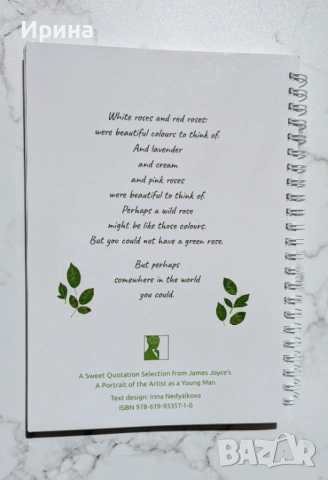 Ирина
White roses and red roses:
were beautiful colours to think of.
And lavender
and cream
and pink roses
were beautiful to think of.
Perhaps a wild rose
might be like those colours.
But you could not have a green rose.
But perhaps
somewhere in the world
you could.
A Sweet Quotation Selection from James Joyce's
A Portrait of the Artist as a Young Man
Text design: Irina Nedyalkova
ISBN 978-619-93357-1-0
BAZAR